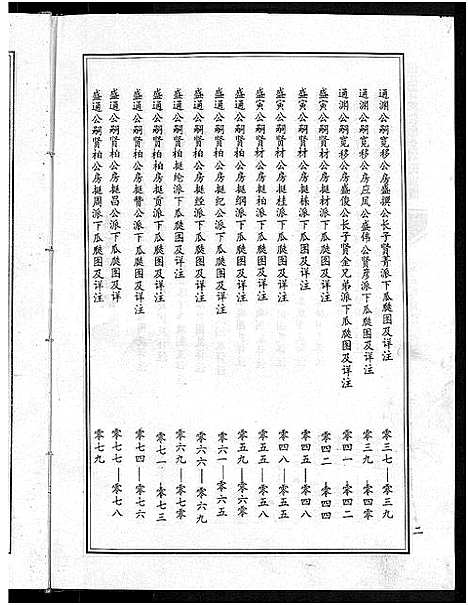 通渊公嗣宽移公房盛撰公长子贤菁派下瓜瓞图及详注 零三七——零三九
通渊公嗣宽移公房应凤公盛伟公贤彦派下瓜瓞图及详注 零三九——零四零
通渊公嗣宽移公房盛俊公长子贤金兄弟派下瓜瓞图及详注 零四一——零四二
盛寅公嗣贤材公房挺材派下瓜瓞图及详注 零四二——零四四
盛寅公嗣贤材公房挺榛派下瓜图及详注 零四五——零四八
盛寅公嗣贤材公房挺桂派下瓜瓞图及详注 零四八——零五五
盛寅公嗣贤材公房挺柏派下瓜瓞图及详注 零五五——零五八
盛通公嗣贤柏公房挺纲派下瓜瓞图及详注 零五九——零六零
盛通公嗣贤柏公房挺纪公派下瓜瓞图及详注 零六一——零六五
盛通公嗣贤柏公房挺经派下瓜瓞图及详注 零六六——零六九
盛通公嗣贤柏挺纶派下瓜瓞图及详注 零六九——零七零
盛通公嗣贤柏公房挺贡派下瓜瓞图及详注 零七一——零七三
盛通公嗣贤柏公房挺赞公派下瓜瓞图及详注 零七四——零七六
盛通公嗣贤柏公房挺昌公派下瓜瓞图及详 零七七——零七八
盛通公嗣贤柏公房挺周派下瓜瓞图及详注 零七九
二